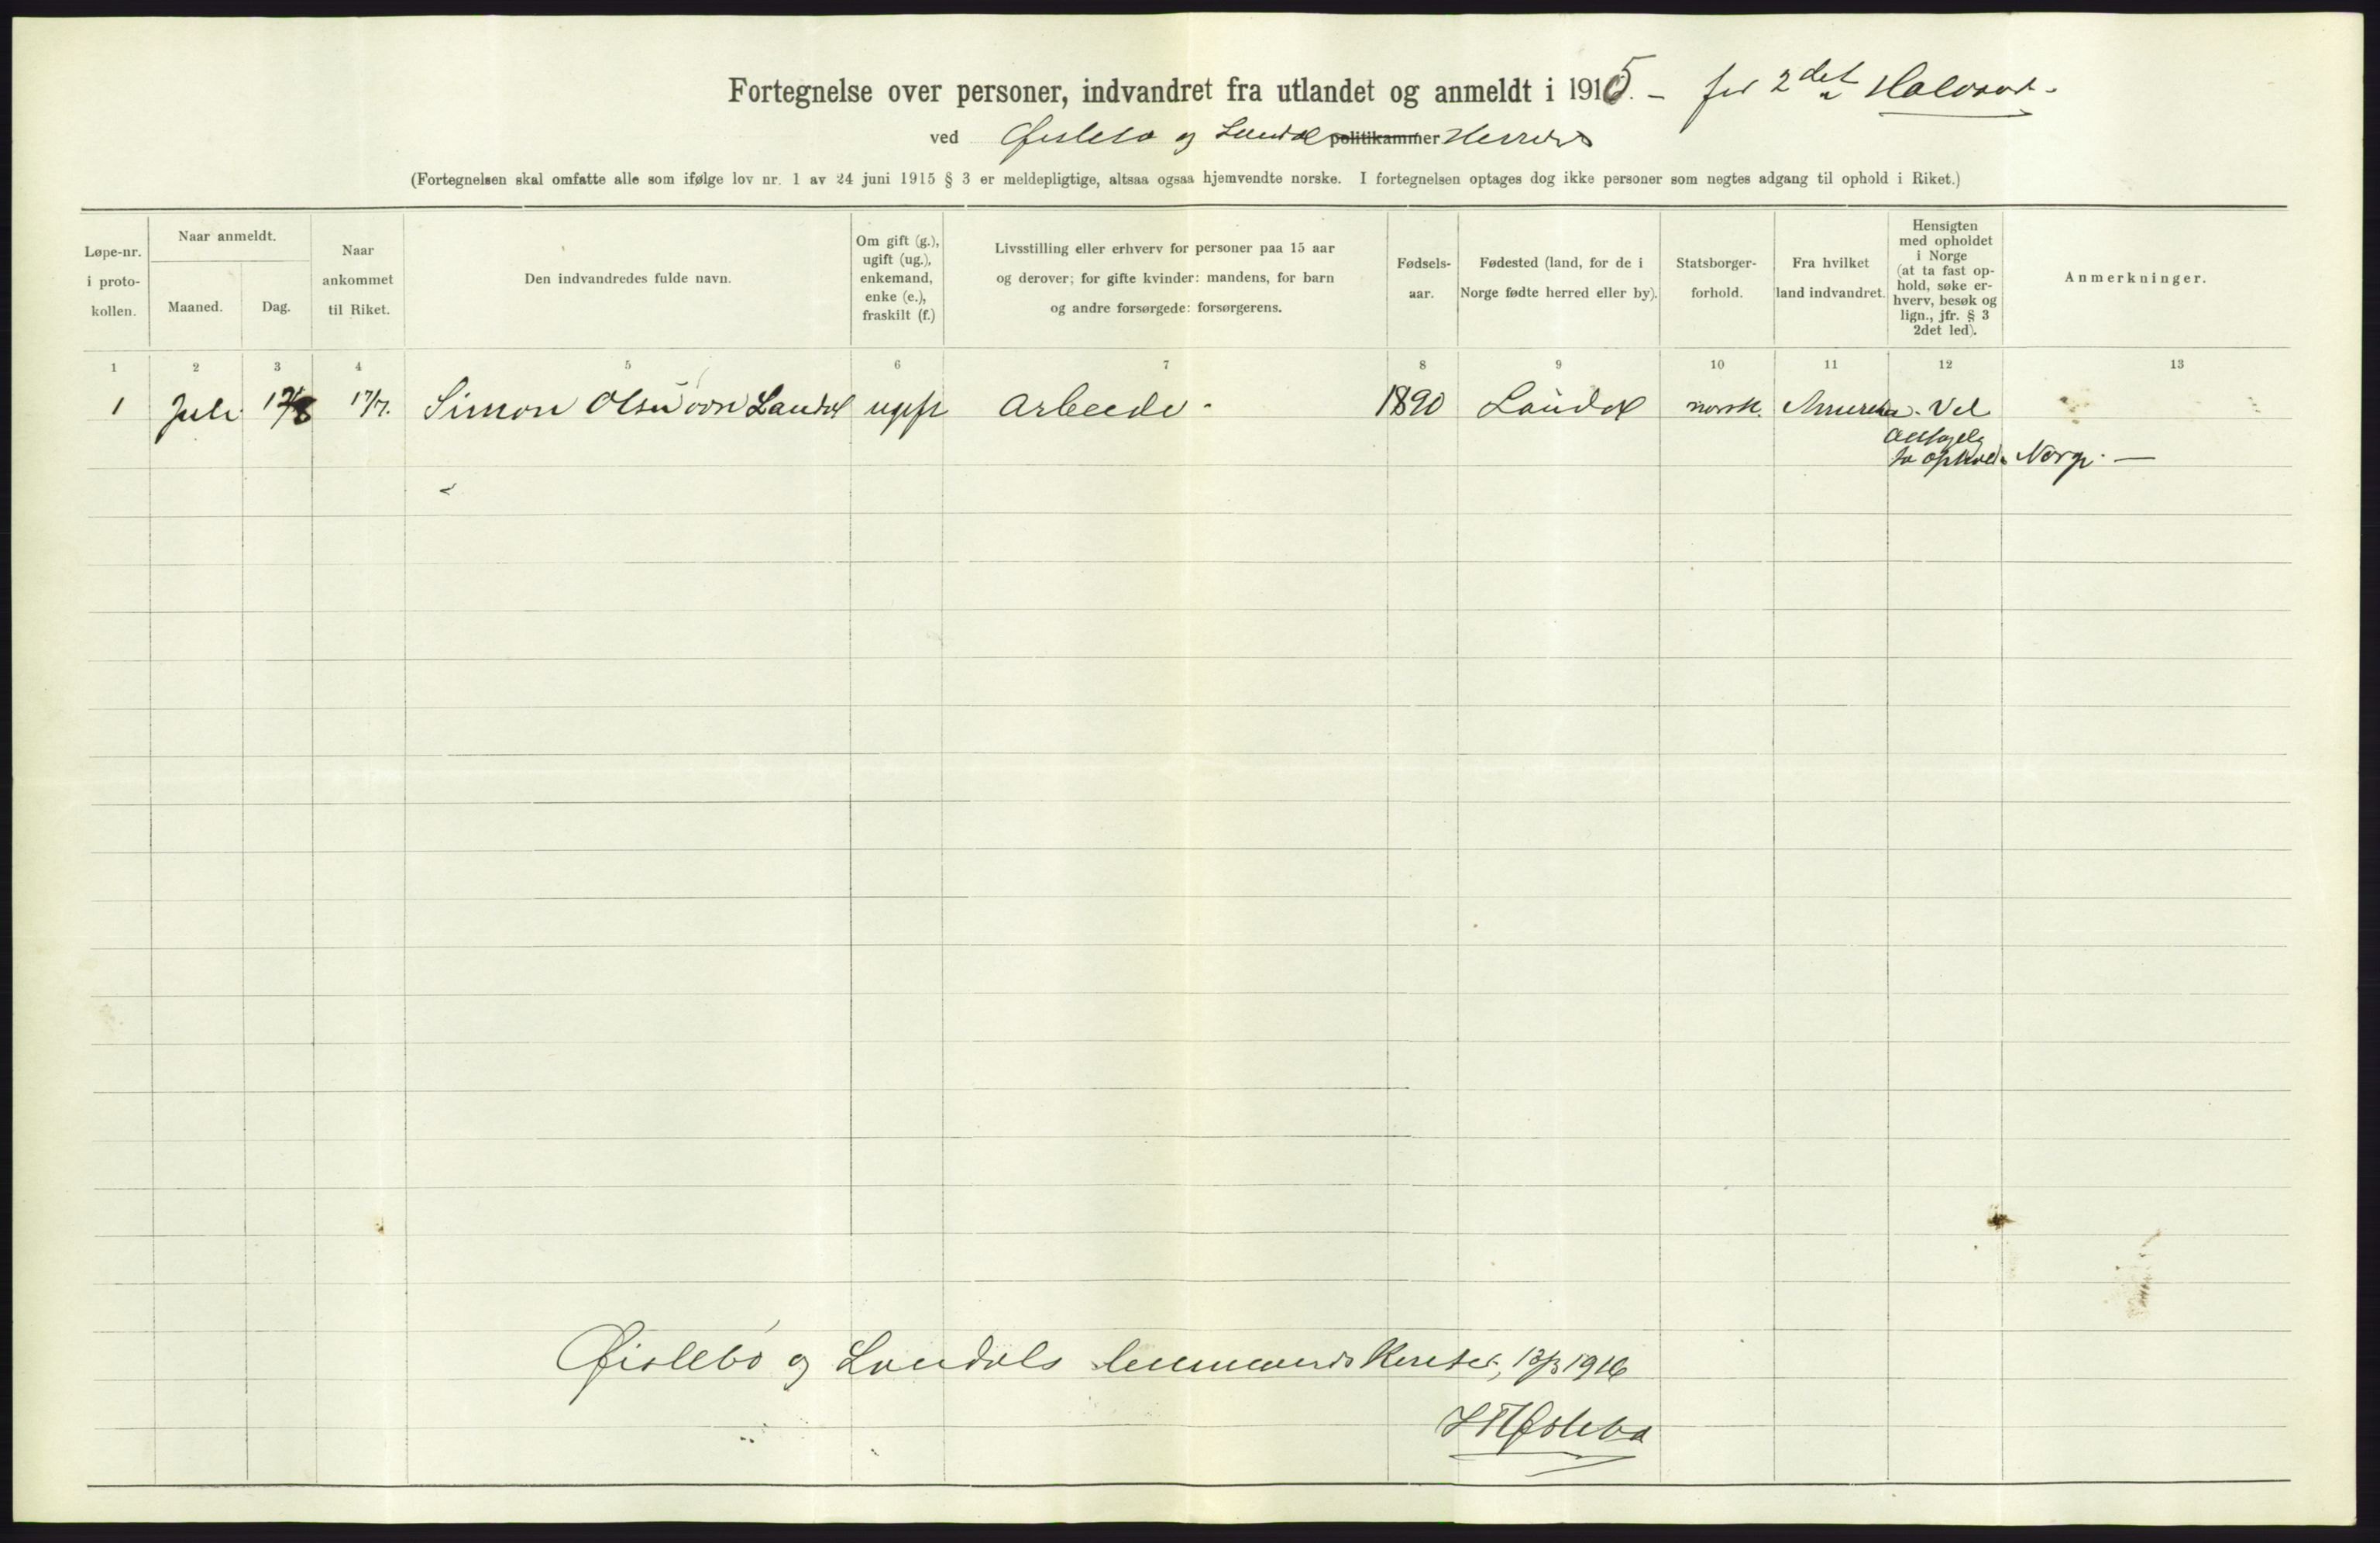 Fortegnelse over personer, indvandret fra utlandet og anmeldt i 1915. – for 2det Halvaar.
ved Øislebø og Laudal politikammer Herreder
(Fortegnelsen skal omfatte alle som ifølge lov nr. 1 av 24 juni 1915 § 3 er meldepligtige, altsaa ogsaa hjemvendte norske. I fortegnelsen optages dog ikke personer som negtes adgang til ophold i Riket.)
Løpe-nr. i proto- kollen.
Naar anmeldt.
Maaned.
Dag.
Naar ankommet til Riket.
Den indvandredes fulde navn.
Om gift (g.), ugift (ug.), enkemand, enke (e.), fraskilt (f.)
Livsstilling eller erhverv for personer paa 15 aar og derover; for gifte kvinder: mandens, for barn og andre forsørgede: forsørgerens.
Fødsels- aar.
Fødested (land, for de i Norge fødte herred eller by).
Statsborger- forhold.
Fra hvilket land indvandret.
Hensigten med opholdet i Norge (at ta fast op- hold, søke er- hverv, besøk og lign., jfr. § 3 2det led).
Anmerkninger.
1 2 3 4 5 6 7 8 9 10 11 12 13
1 Juli 17/7. Simon Olsen Laudal ugift Arbeider 1890 Laudal norsk. Amerika. Vel
ta ophold i Norge. —
Øislebø og Laudals lensmandskontor, 13/3 1916
Øislebø